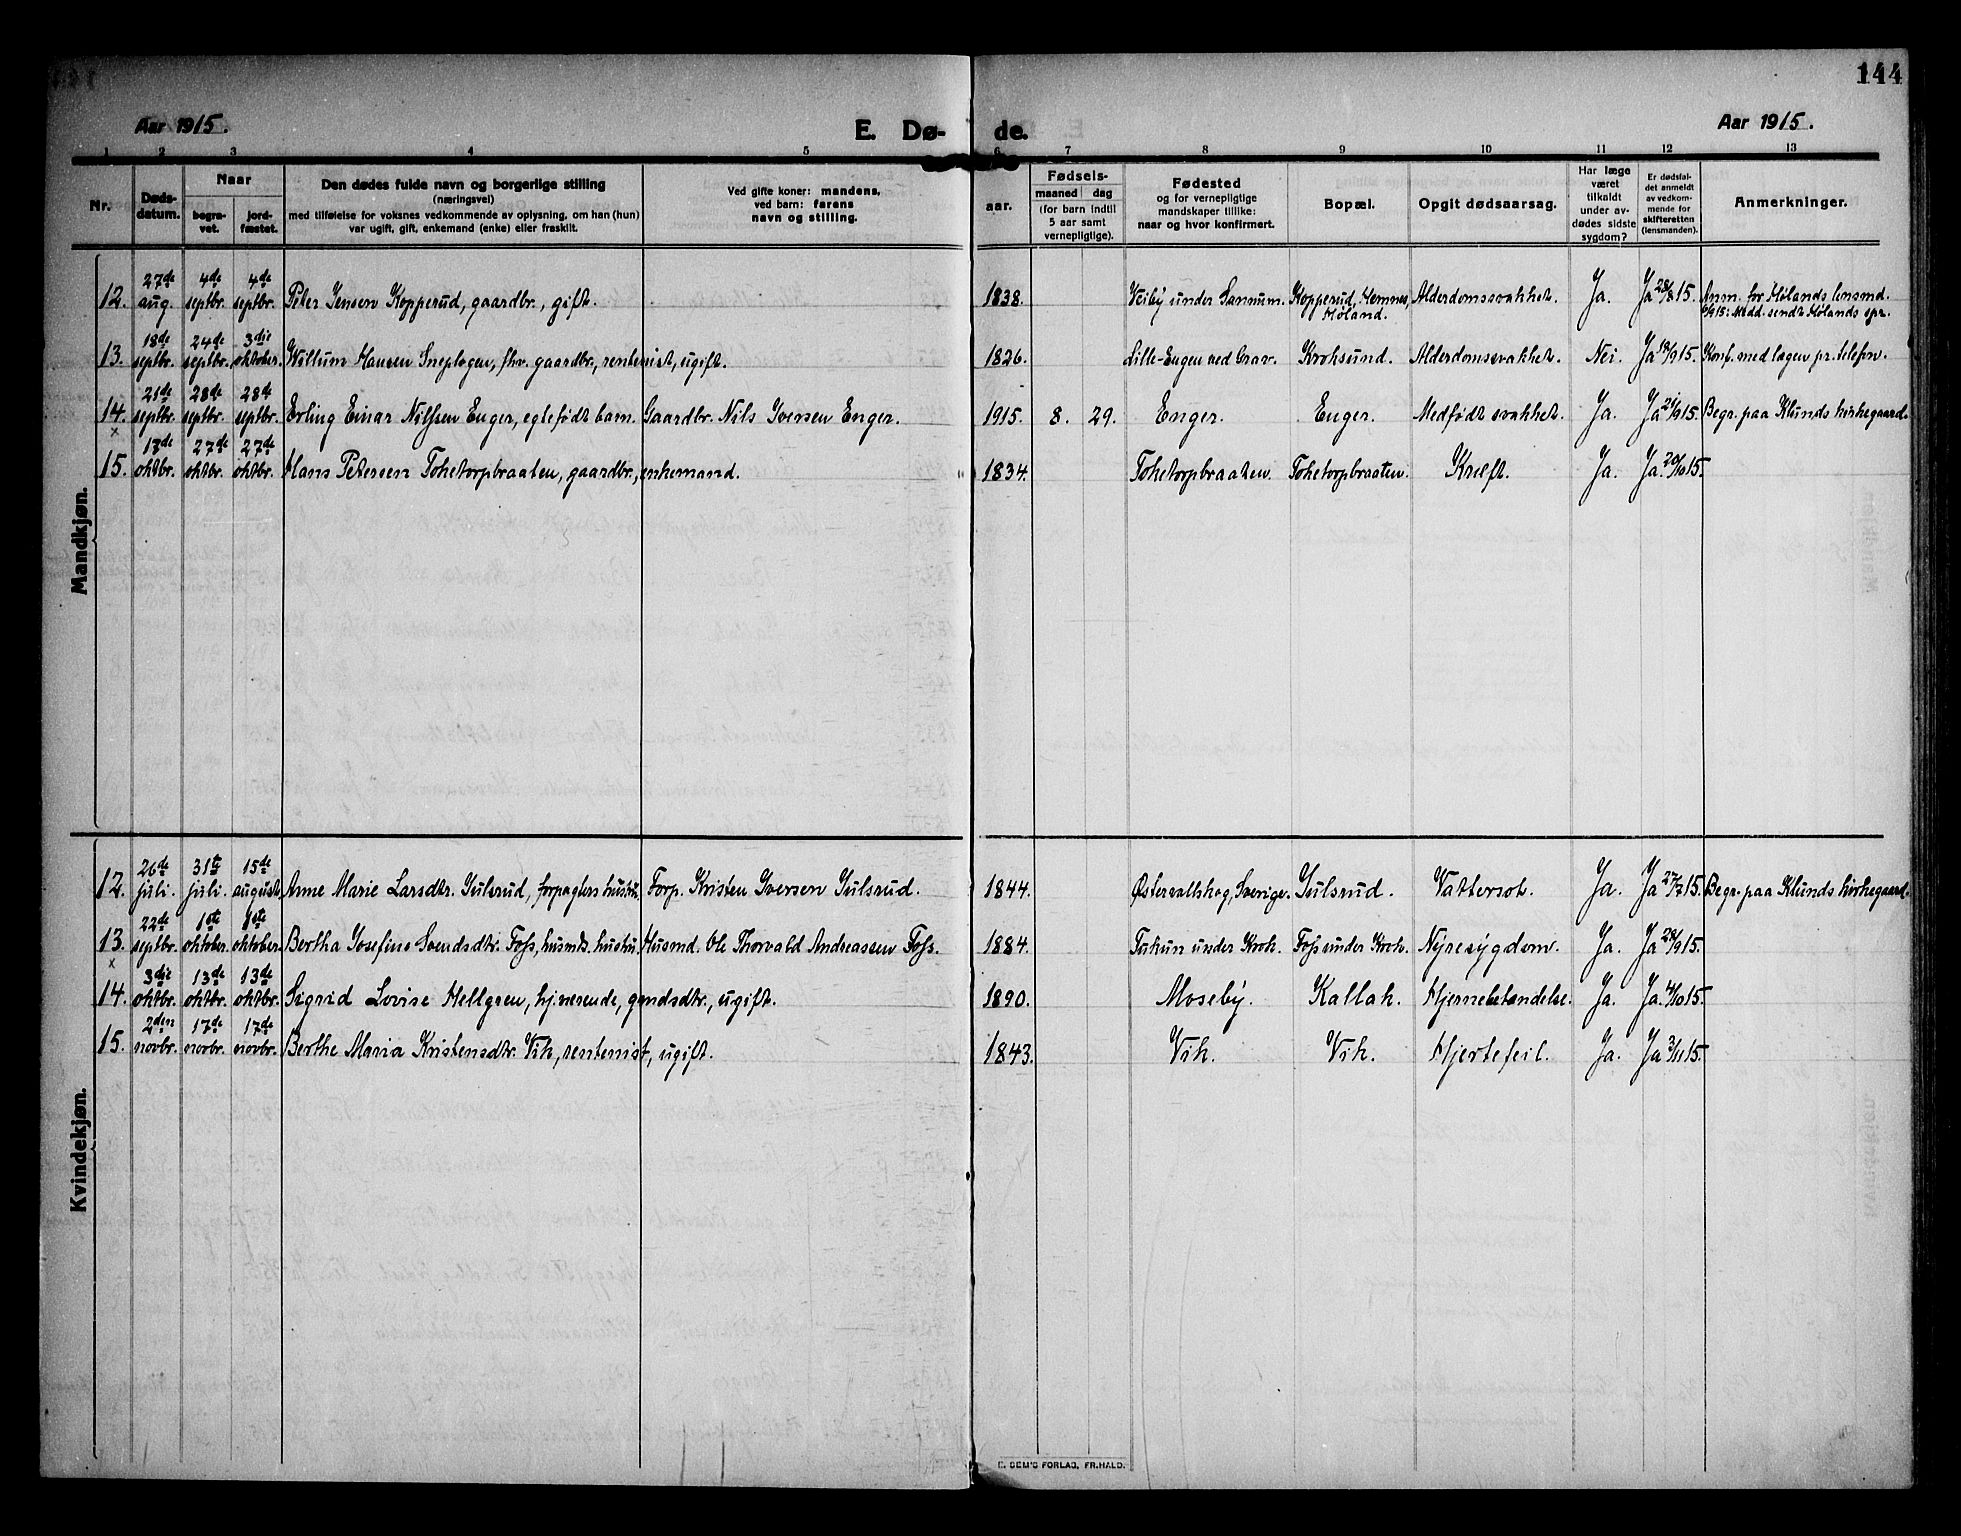 144
Aar 1915.
E. Dø-
de.
Aar 1915.
1 2 3 4 5 6 7 8 9 10 11 12 13
Nr.
Døds-
datum.
Naar
begra-
vet.
jord-
fæstet.
Den dødes fulde navn og borgerlige stilling
(næringsvei)
med tilføielse for voksnes vedkommende av oplysning, om han (hun)
var ugift, gift, enkemand (enke) eller fraskilt.
Ved gifte koner: mandens,
ved barn: farens
navn og stilling.
aar.
Fødsels-
maaned dag
(for barn indtil
5 aar samt
vernepligtige).
Fødested
og for vernepligtige
mandskaper tillike:
naar og hvor konfirmert.
Bopæl.
Opgit dødsaarsag.
Har læge
været
tilkaldt
under av-
dødes sidste
sygdom?
Er dødsfal-
det anmeldt
av vedkom-
mende for
skifteretten
(lensmanden).
Anmerkninger.
Mandkjøn.
12. 27de aug. 4de septbr. 4de septbr. Peter Jensen Kopperud, gaardbr., gift. 1838. Veiby under Sannum. Kopperud, Hemnes, Høland. Alderdomssvakhet. Ja. Ja 28/8 15. Anm. for Hølands lensmd.
6/9 15: Medd. sendt Hølands spr.
13. 18de septbr. 24de septbr. 3die oktober. Willum Hansen Sneplogen, fhv. gaardbr., rentenist, ugift. 1826. Lille-Engen ved Grav. Kroksund. Alderdomssvakhet. Nei. Ja 19/9 15. Konf. med lægen pr. telefon.
14. 21de septbr. 28de septbr. 28de septbr. Erling Einar Nilssen Enger, egtefødt barn. Gaardbr. Nils Iversen Enger. 1915. 8. 29. Enger. Enger. Medfødt svakhet. Ja. Ja 21/9 15. Begr. paa Klunds kirkegaard.
x
15. 13de oktbr. 27de oktbr. 27de oktbr. Hans Petersen Toketorpbraaten, gaardbr., enkemand. 1834. Toketorpbraaten. Toketorpbraaten. Kræft. Ja. Ja. 20/10 15.
Kvindekjøn.
12. 26de juli. 31te juli. 15de august. Anne Marie Larsdtr. Julsrud, forpagters hustru. Forp. Kristen Iversen Julsrud. 1844. Østervallskog, Sverige. Julsrud. Vattersot. Ja. Ja 27/7 15. Begr. paa Klunds kirkegaard.
13. 22de septbr. 1ste oktober. 1ste oktober. Bertha Josefine Svendsdtr. Foss, husmds. hustru. Husmd. Ole Thorvald Andreassen Foss. 1884. under Krok. Foss under Krok. Nyresygdom. Ja. Ja 29/9 15.
x
14. 3die oktbr. 13de oktbr. 13de oktbr. Sigrid Lovise Hellgren, tjenende, gmdsdtr., ugift. 1890. Moseby. Kallak. Hjernebetændelse. Ja. Ja. 4/10 15.
15. 2den novbr. 17de novbr. 17de novbr. Berthe Maria Kristensdtr. Vik, rentenist, ugift. 1843. Vik. Vik. Hjertefeil. Ja. Ja 3/11 15.
E. SEM'S FORLAG, FR.HALD.